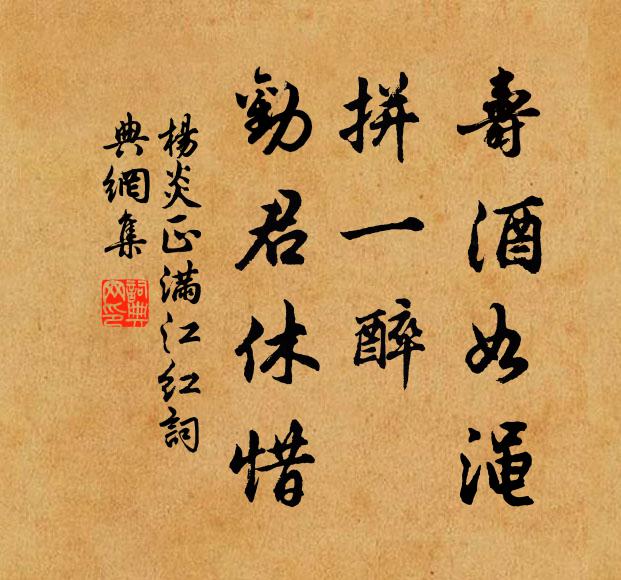 壽酒如渑
拼一醉
勸君休惜
楊炎正满江紅詞
典網集
詞典网印